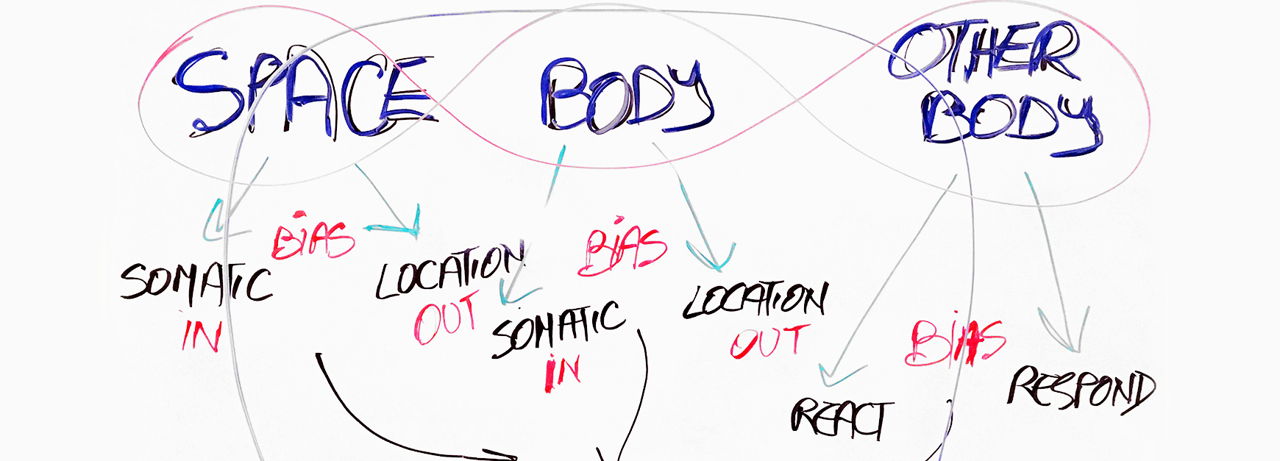 SPACE
BODY
OTHER
BODY
BIAS
SOMATIC
IN
LOCATION
OUT
BIAS
SOMATIC
IN
LOCATION
OUT
BIAS
REACT
RESPOND